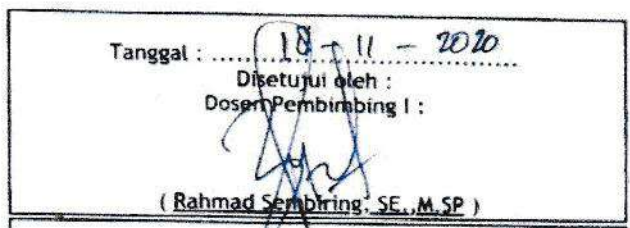 Tanggal : 18 - 11 - 2020
Disetujui oleh :
Dosen Pembimbing I :
( Rahmad Sembiring, SE., M.SP )